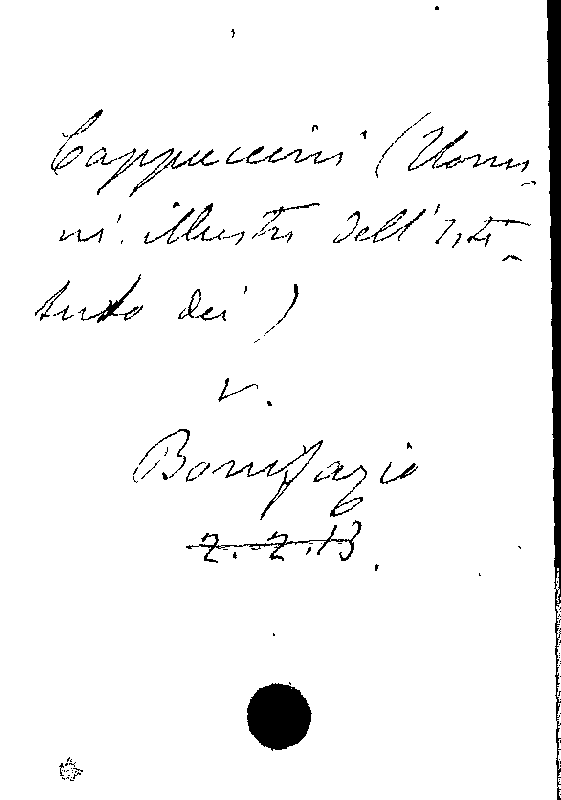 Cappuccini (Uomi-
ni illustri dell'Isti-
tuto dei)
v.
Bonifazio
2. 2. 13.